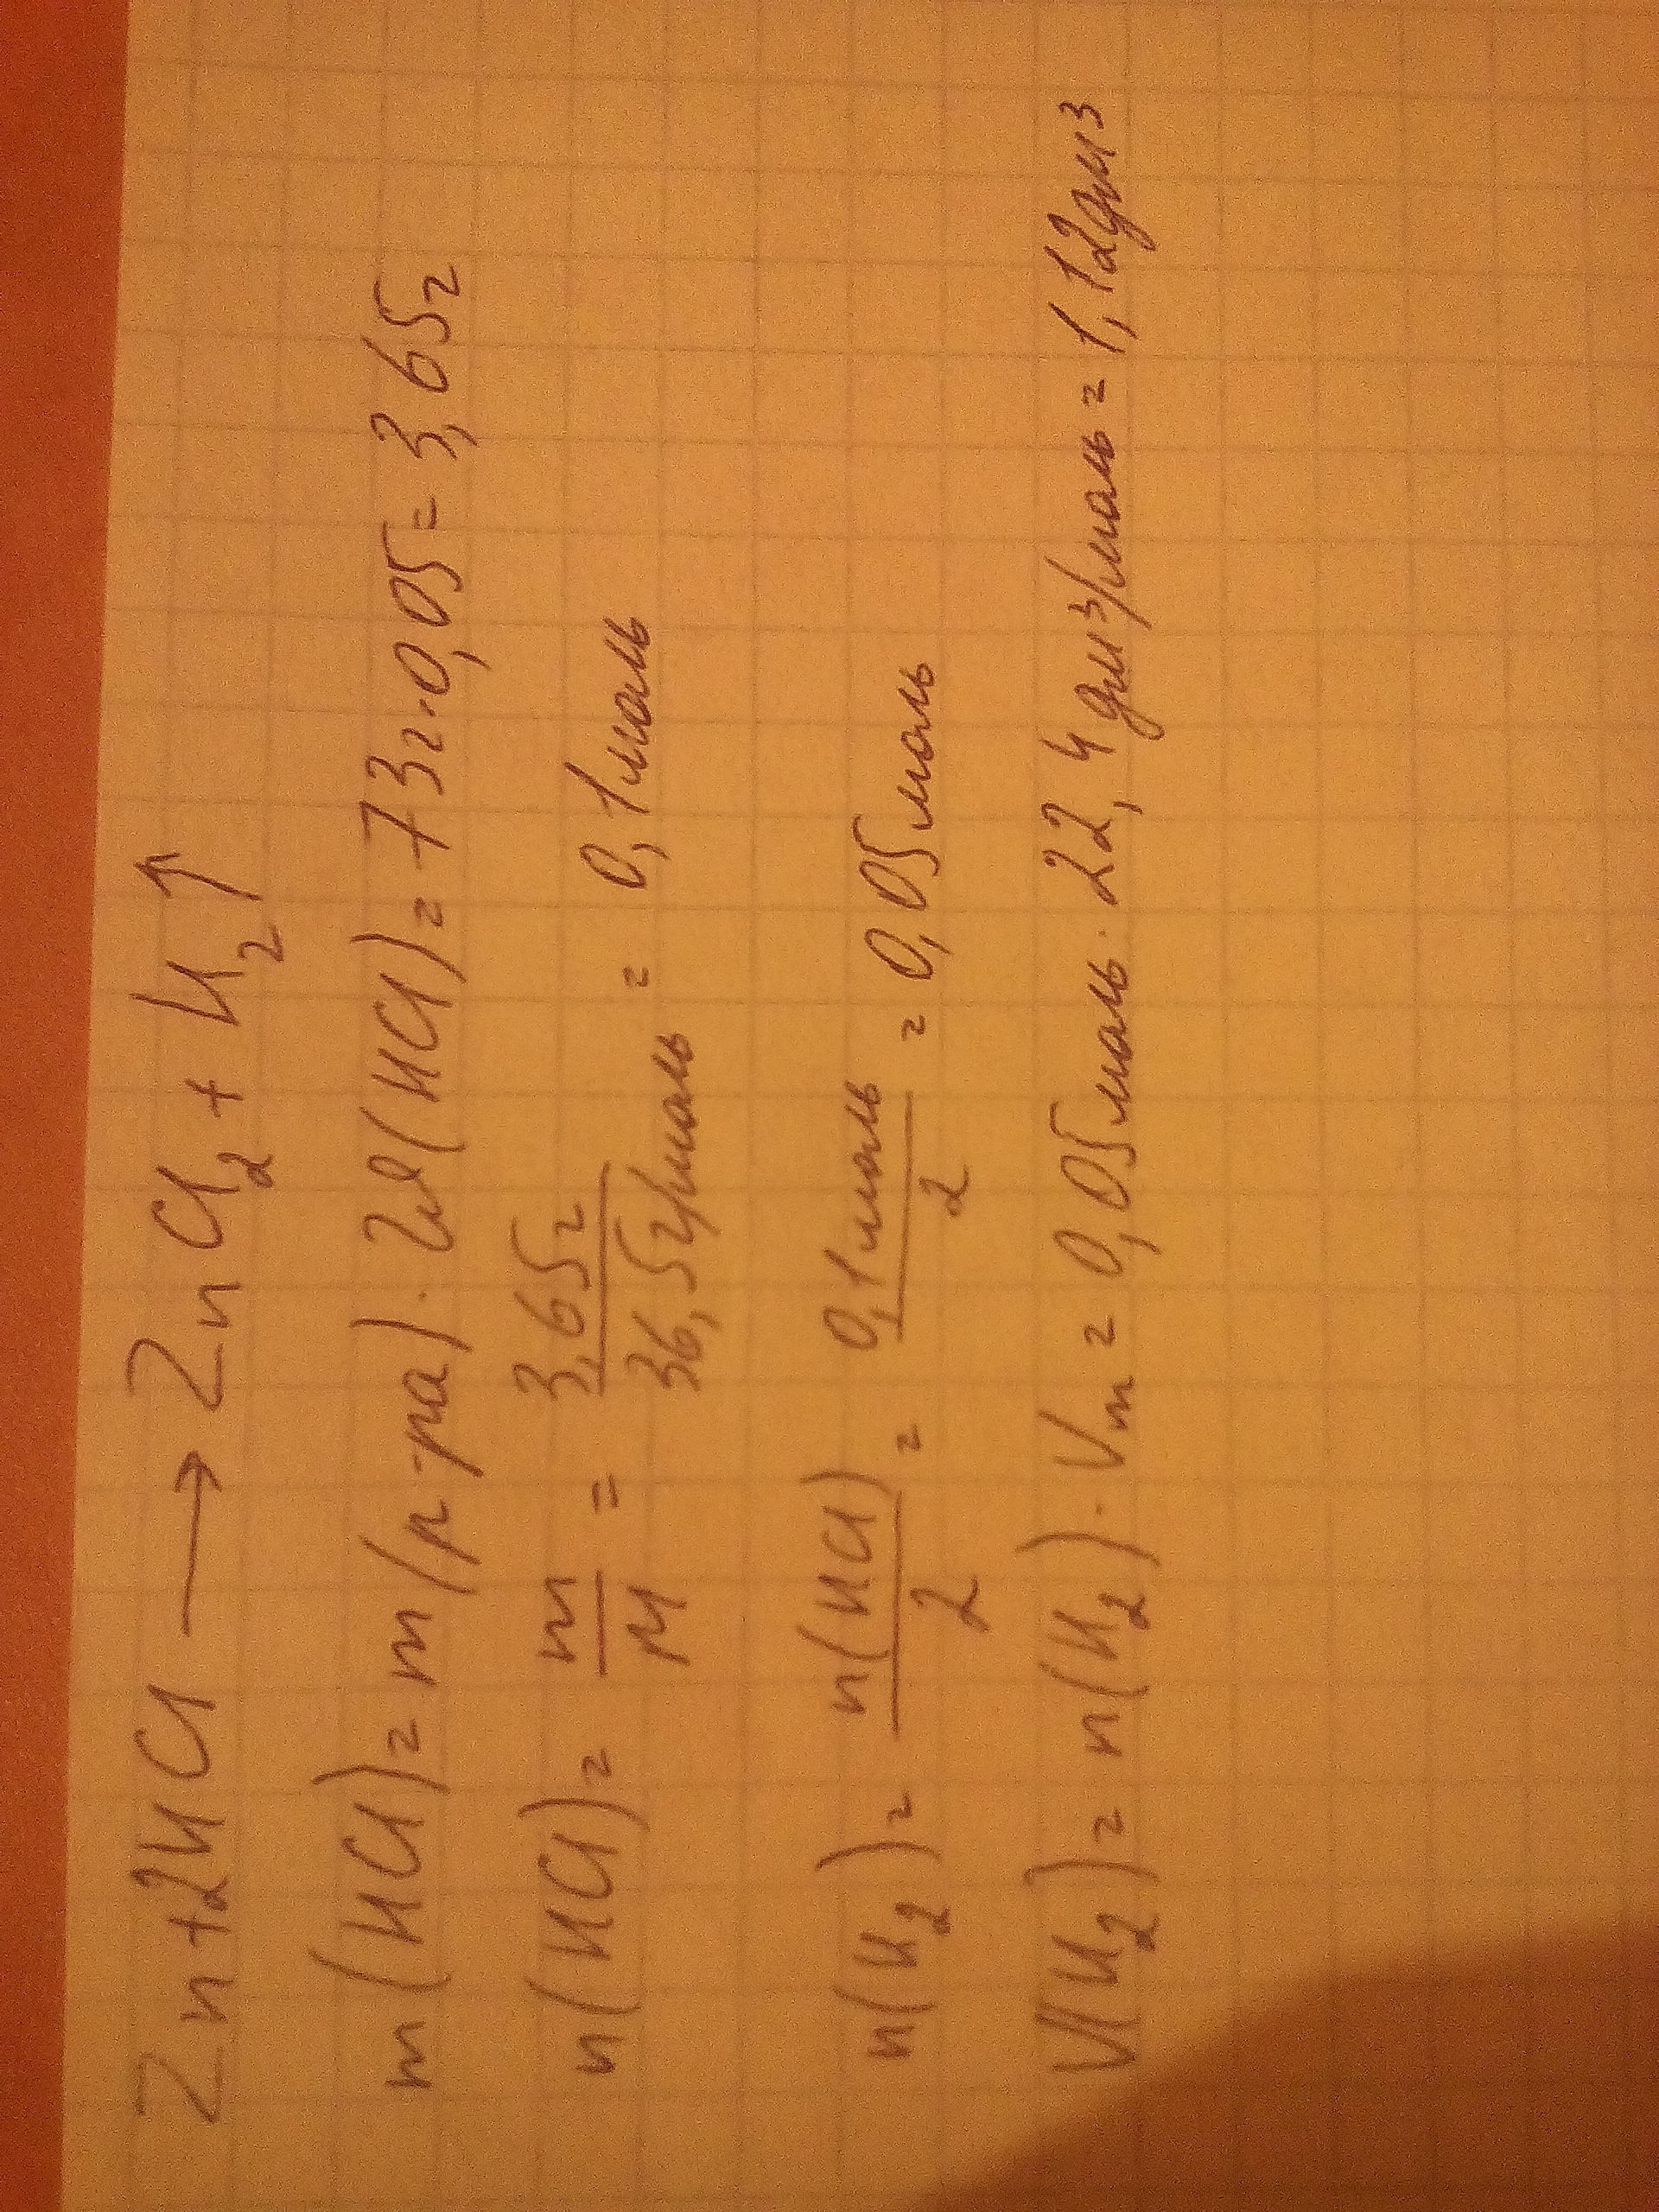 Zn+2HCl → ZnCl₂ + H₂↑
m(HCl)=m(р-ра)·W(HCl)=73г·0,05=3,65г
n(HCl)= m/M = 3,65г/36,5г/моль = 0,1моль
n(H₂)= n(HCl)/2 = 0,1моль/2 = 0,05моль
V(H₂)=n(H₂)·Vm=0,05моль·22,4дм³/моль=1,12дм³